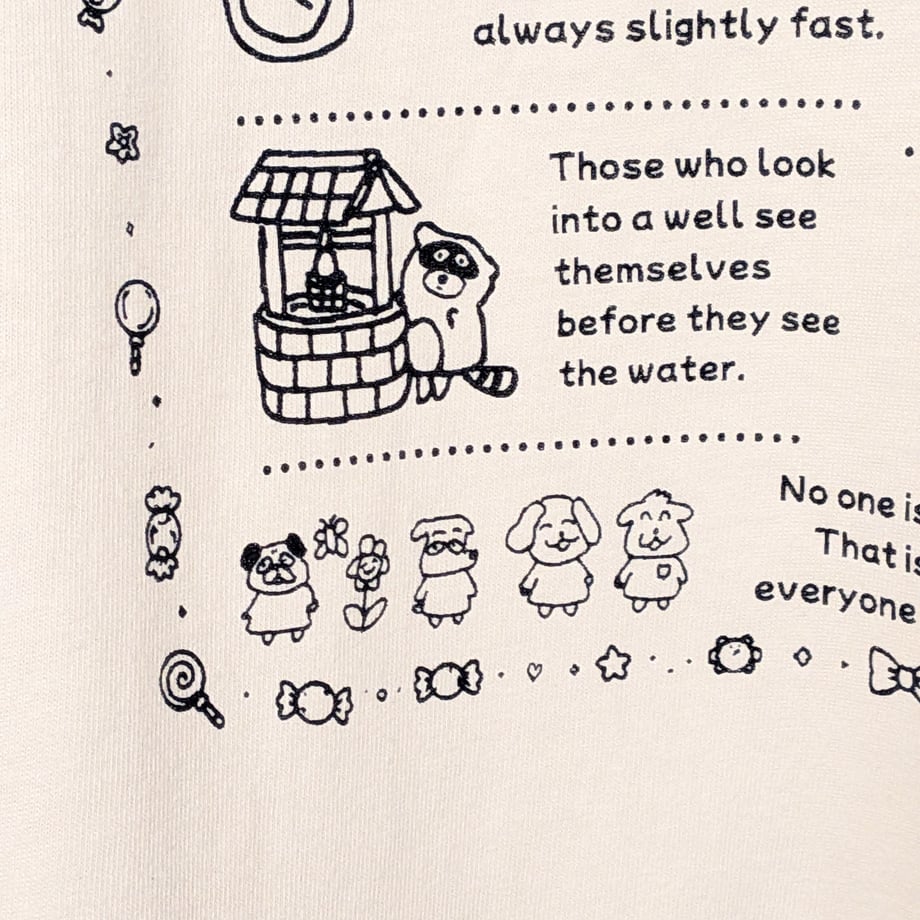 always slightly fast.
Those who look
into a well see
themselves
before they see
the water.
No one is
That is
everyone